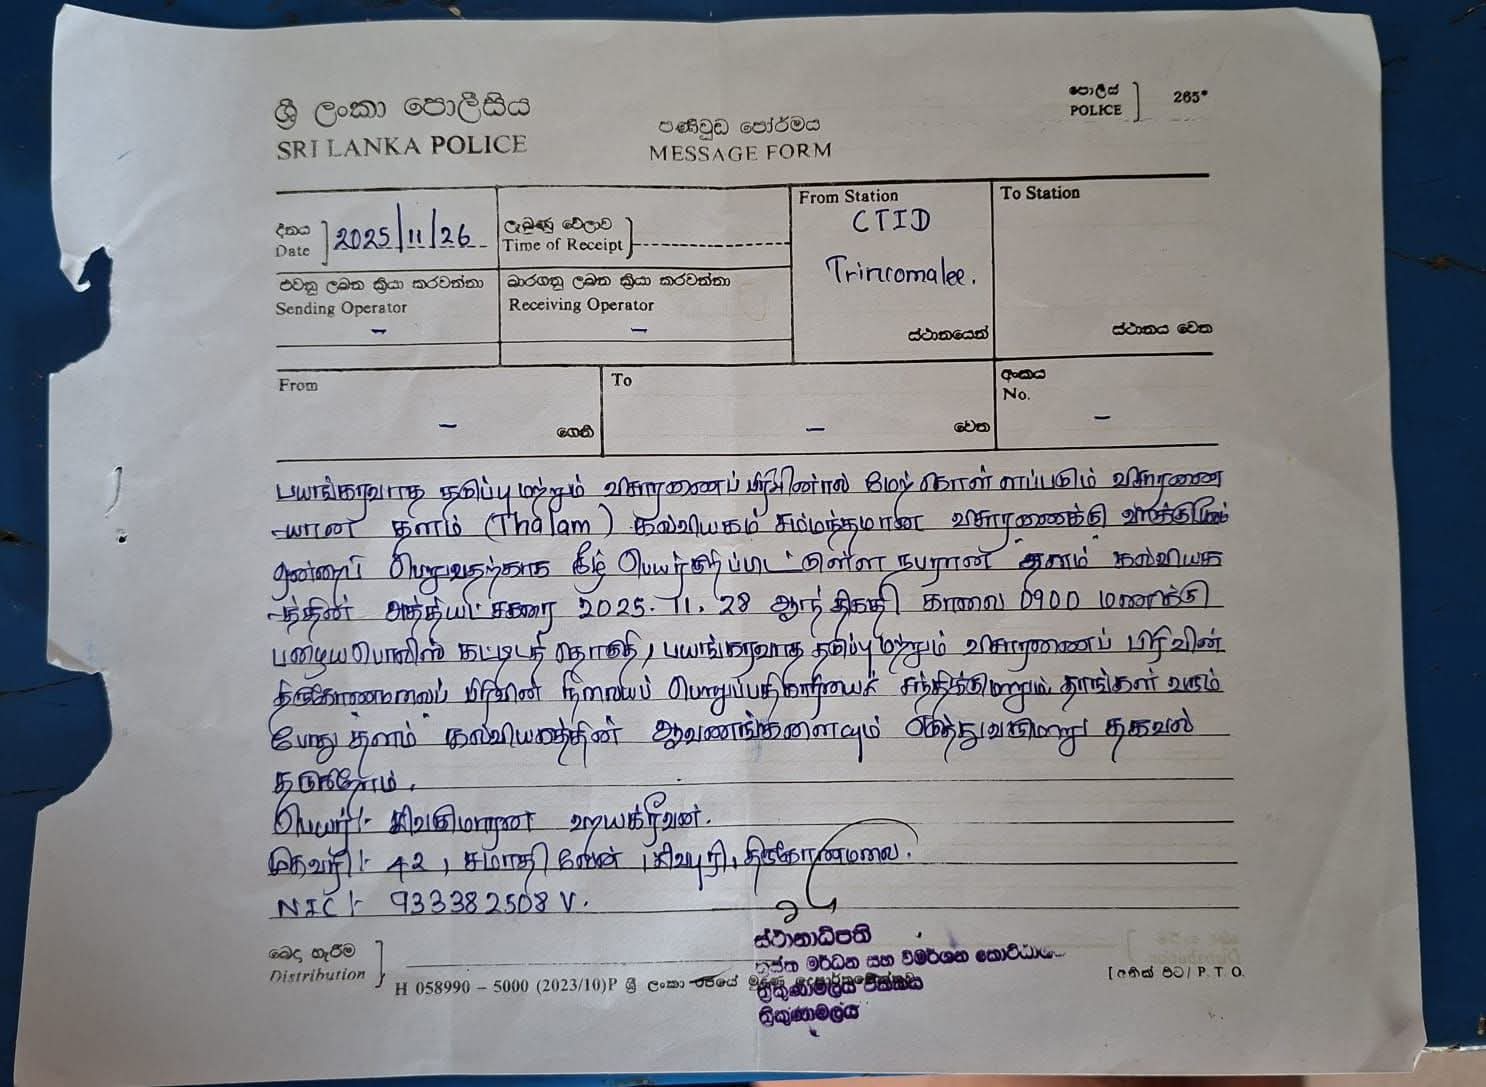 ශ්‍රී ලංකා පොලීසිය
SRI LANKA POLICE
පණිවුඩ පෝර්මය
MESSAGE FORM
පොලිස්
POLICE
265
දිනය
Date
2025/11/26
ලැබුණු වේලාව
Time of Receipt
From Station
CTID
Trincomalee.
ස්ථානයෙන්
To Station
ස්ථානය වෙත
එවනු ලබන ක්‍රියා කරවන්නා
Sending Operator
–
භාරගනු ලබන ක්‍රියා කරවන්නා
Receiving Operator
–
From
–
ගෙන්
To
–
වෙත
අංකය
No.
–
பயங்கரவாத தடுப்பு மற்றும் விசாரணைப் பிரிவினால் மேற்கொள்ளப்படும் விசாரணை
-யான தளம் (Thalam) கல்வியகம் சம்மந்தமான விசாரணைக்கு வாக்குமூலம்
ஒன்றைப் பெறுவதற்காக கீழ் பெயர்குறிப்பிட்டுள்ள நபரான "தளம்" கல்வியக
-த்தின் அத்தியட்சகரை 2025.11.28 ஆந் திகதி காலை 0900 மணிக்கு
பழைய பொலிஸ் கட்டிடத் தொகுதி, பயங்கரவாத தடுப்பு மற்றும் விசாரணைப் பிரிவின்
திருகோணமலைப் பிரிவின் நிலையப் பொறுப்பதிகாரியைச் சந்திக்குமாறும் தாங்கள் வரும்
போது தளம் கல்வியகத்தின் ஆவணங்களையும் எடுத்து வருமாறு தகவல்
தருகிறோம்.
பெயர்:- சிவகுமாரன் ஹயக்ரீவன்.
முகவரி:- 42, சமாதி லேன், சிவபுரி, திருகோணமலை.
NIC:- 933382508 V.
බෙදා හැරීම
Distribution
H 058990 – 5000 (2023/10) P ශ්‍රී ලංකා රජයේ
ස්ථානාධිපති
ත්‍රස්ත මර්ධන සහ විමර්ශන කොට්ඨාශ
ත්‍රිකුණාමලය
[අනික් පිට/P. T. O.